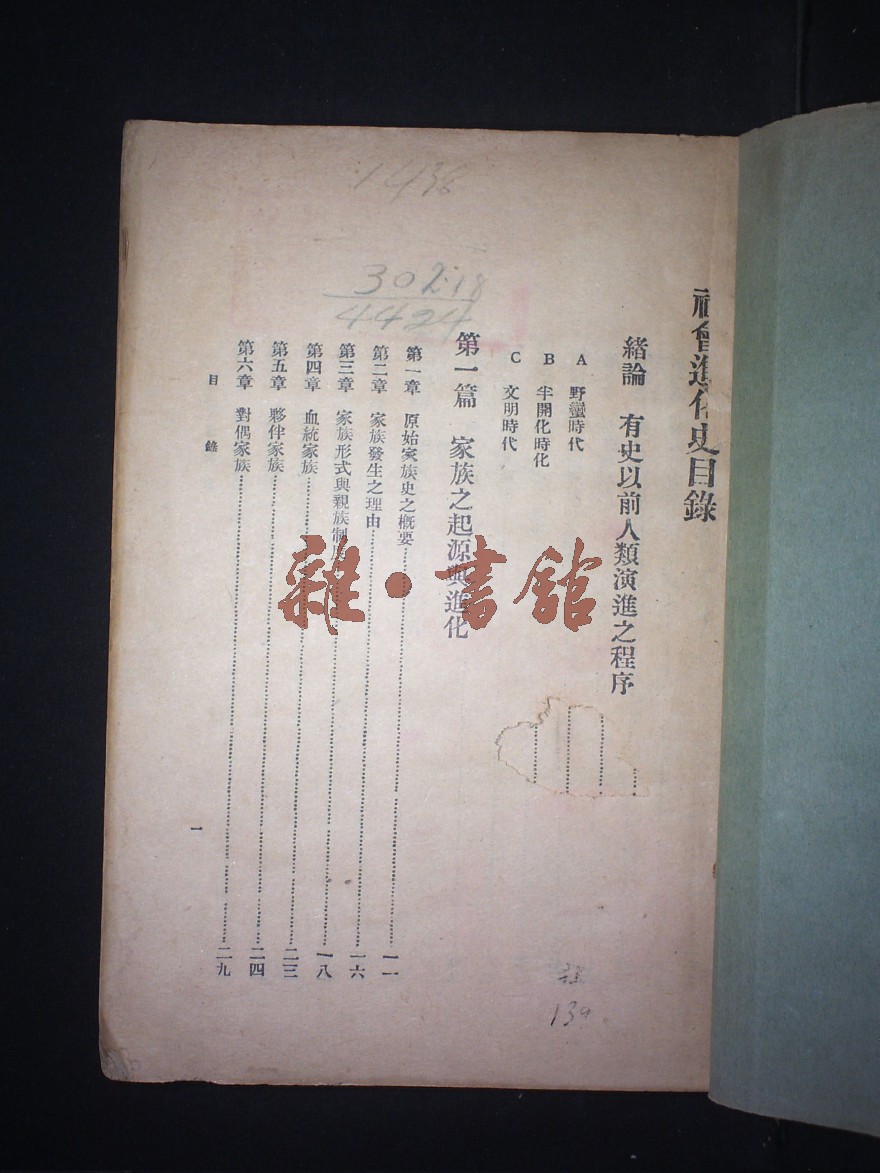 社會進化史目錄
緒論 有史以前人類演進之程序
A 野蠻時代
B 半開化時化
C 文明時代
第一篇 家族之起源與進化
第一章 原始家族史之概要 一一
第二章 家族發生之理由 一六
第三章 家族形式與親族制度 一八
第四章 血統家族 二三
第五章 夥伴家族 二四
第六章 對偶家族 二九
目錄
一
1436
302.18
4424
139
雜·書館